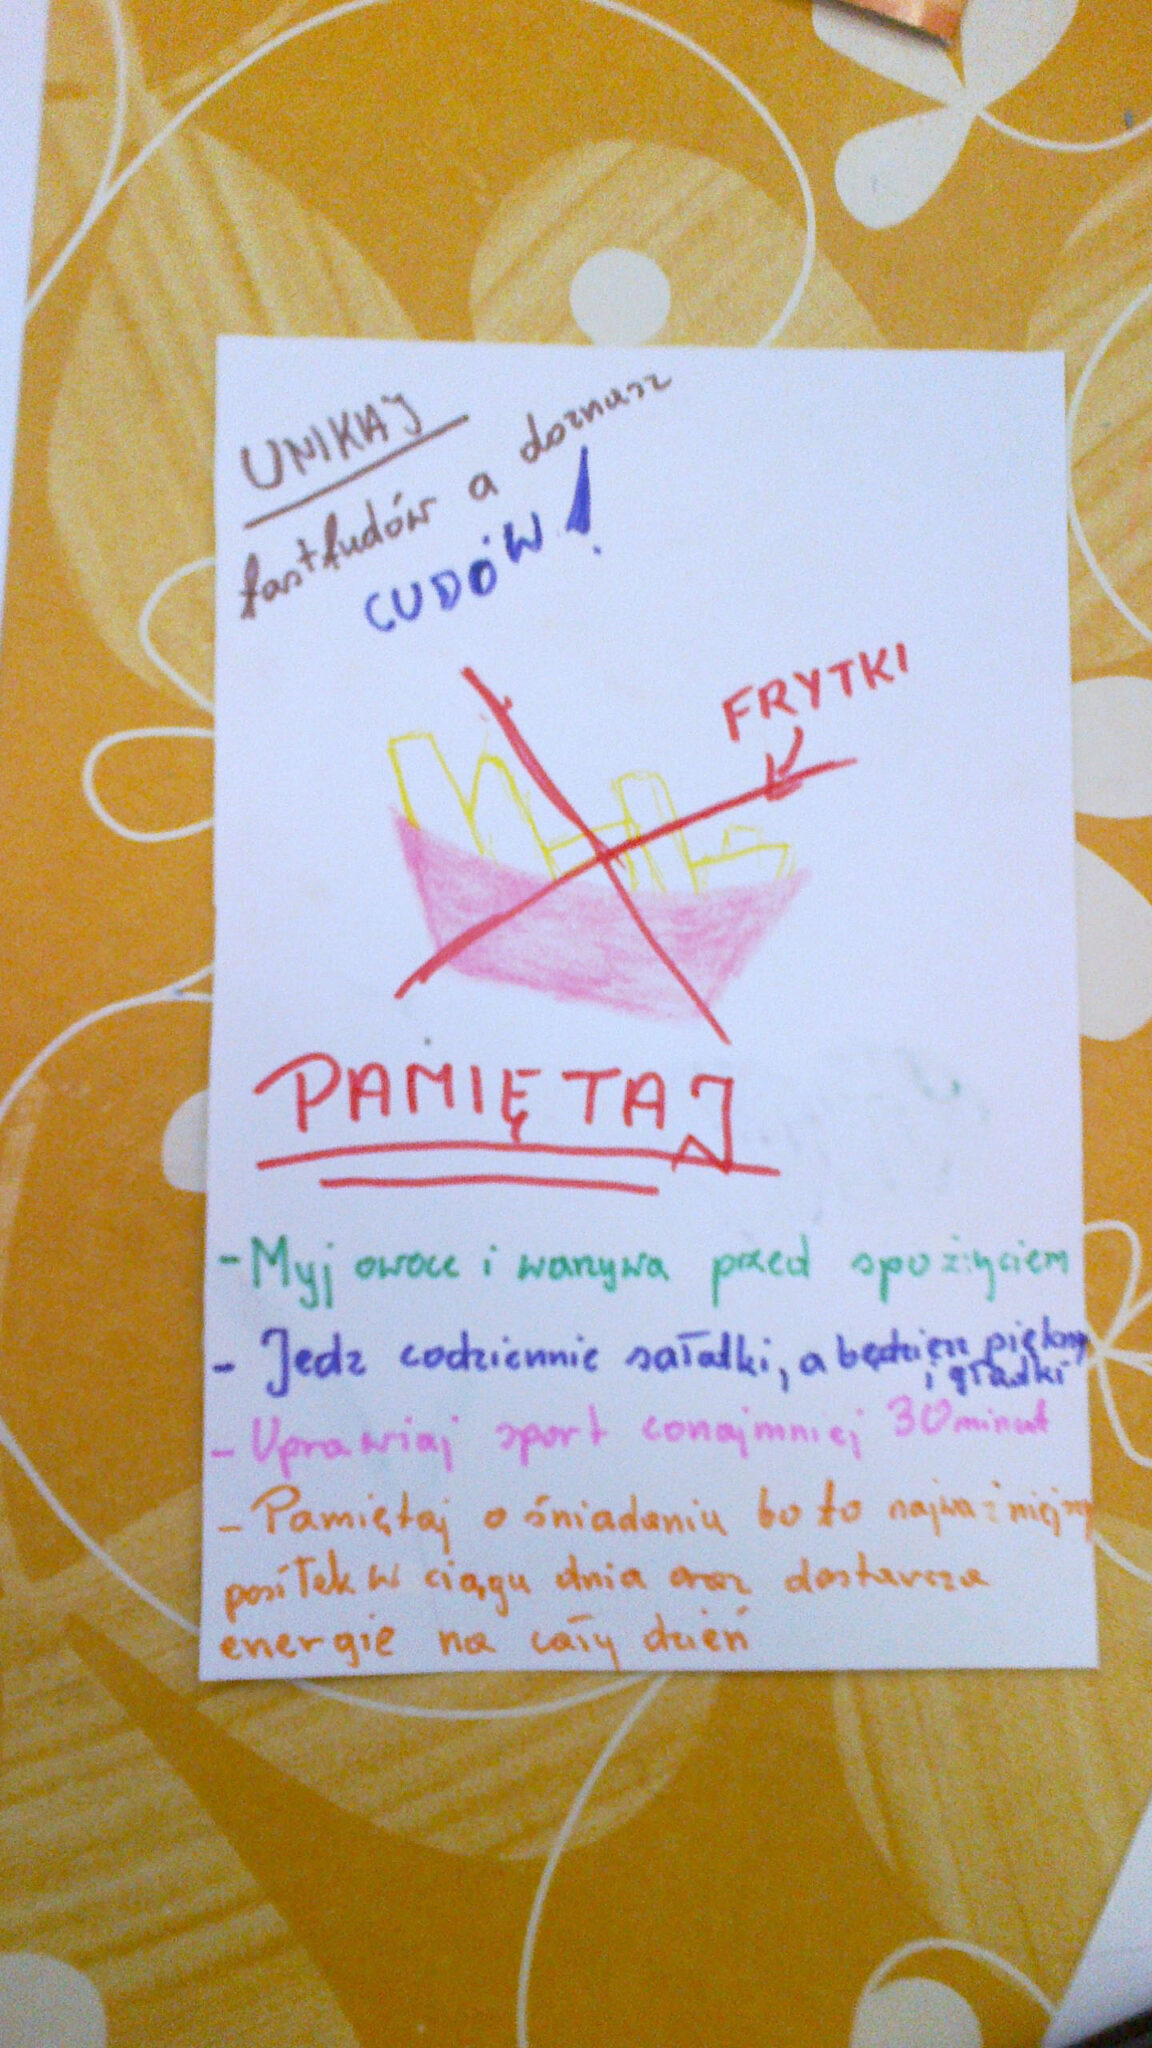 UNIKAJ
fastfudów a doznasz
CUDÓW!
FRYTKI
PAMIĘTAJ
- Myj owoce i warzywa przed spożyciem
- Jedz codziennie sałatki, a będziesz piękny
i gładki
- Uprawiaj sport conajmniej 30 minut
- Pamiętaj o śniadaniu bo to najważniejszy
posiłek w ciągu dnia oraz dostarcza
energie na cały dzień